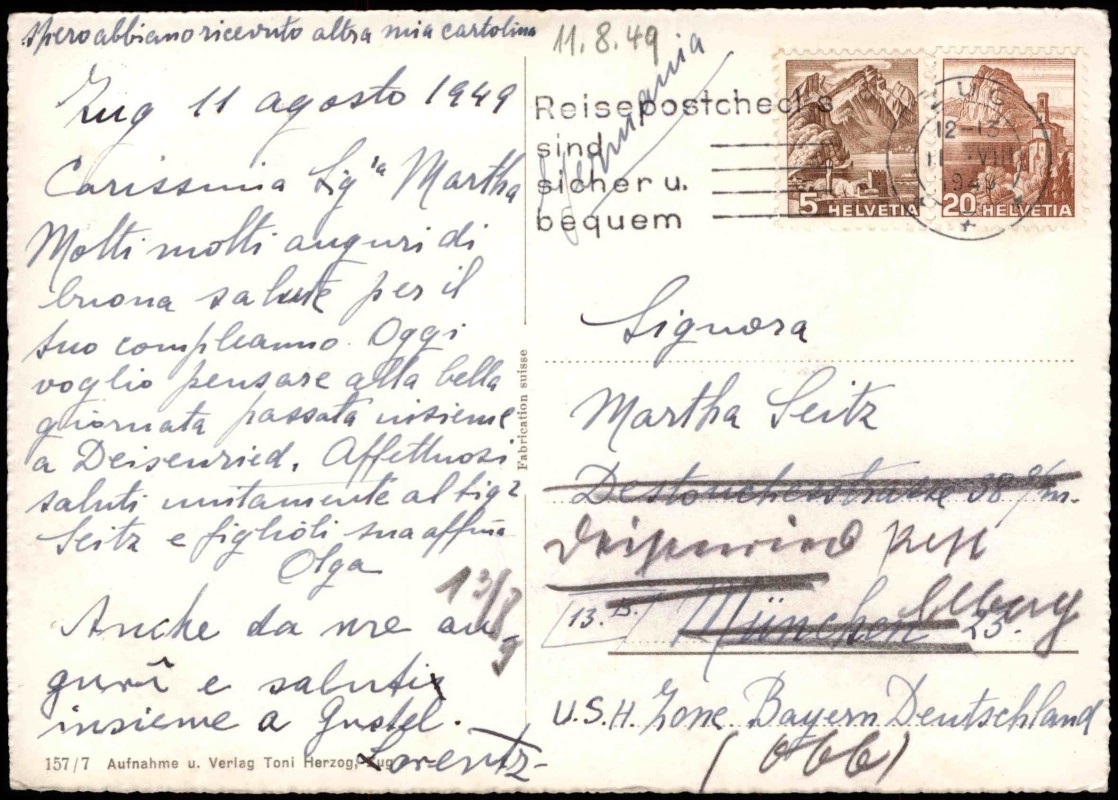 spero abbiano ricevuto altra mia cartolina
11.8.49
Zug 11 agosto 1949
Carissima Sigra Martha
Molti molti auguri di
buona salute per il
suo compleanno. Oggi
voglio pensare alla bella
giornata passata insieme
a Deisenried. Affettuosi
saluti unitamente al Sigr
Seitz e figlioli sua affma
Olga
Anche da me au-
guri e saluti
insieme a Gustel.
Lorentz
157/7 Aufnahme u. Verlag Toni Herzog, Zug
Fabrication suisse
Germania
Reisepostchecks
sind
sicher u.
bequem
5 HELVETIA
20 HELVETIA
ZUG
12-13
11 VIII
1949
Signora
Martha Seitz
Destoucherstrasse 38
Deisenried Post
13. B. München 23.
U.S.A. Zone Bayern Deutschland
(Obb)